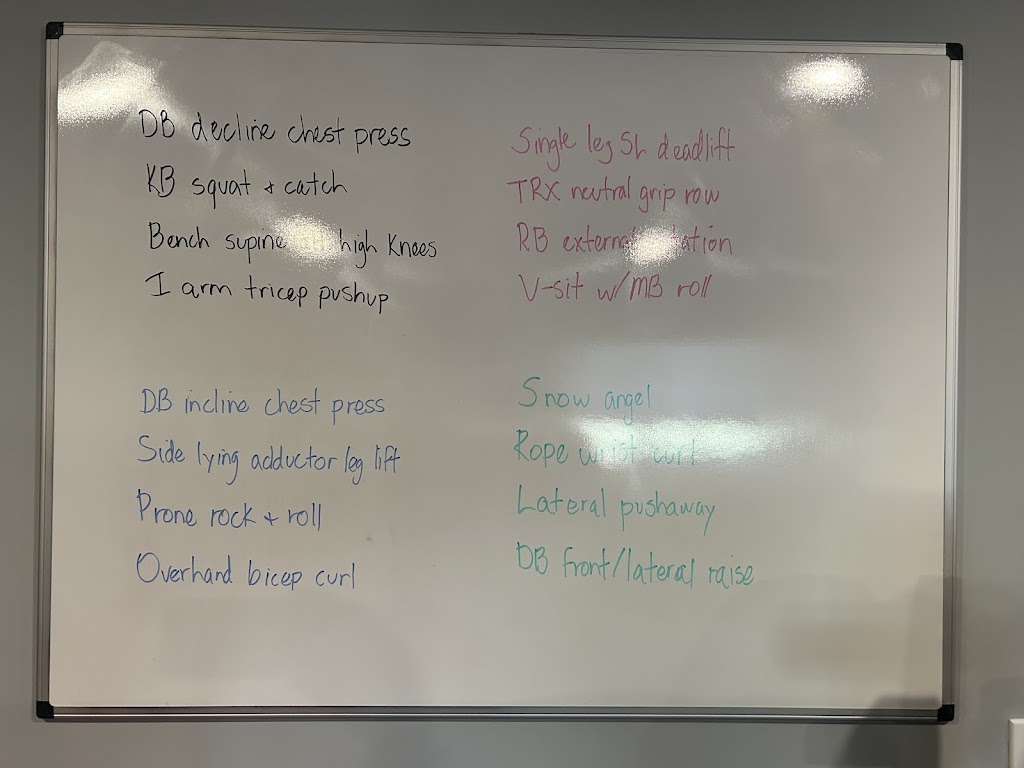 DB decline chest press
KB squat + catch
Bench supine high knees
1 arm tricep pushup
Single leg SL deadlift
TRX neutral grip row
RB external rotation
V-sit w/ MB roll
DB incline chest press
Side lying adductor leg lift
Prone rock + roll
Overhand bicep curl
Snow angel
Rope wrist curl
Lateral pushaway
DB front/lateral raise